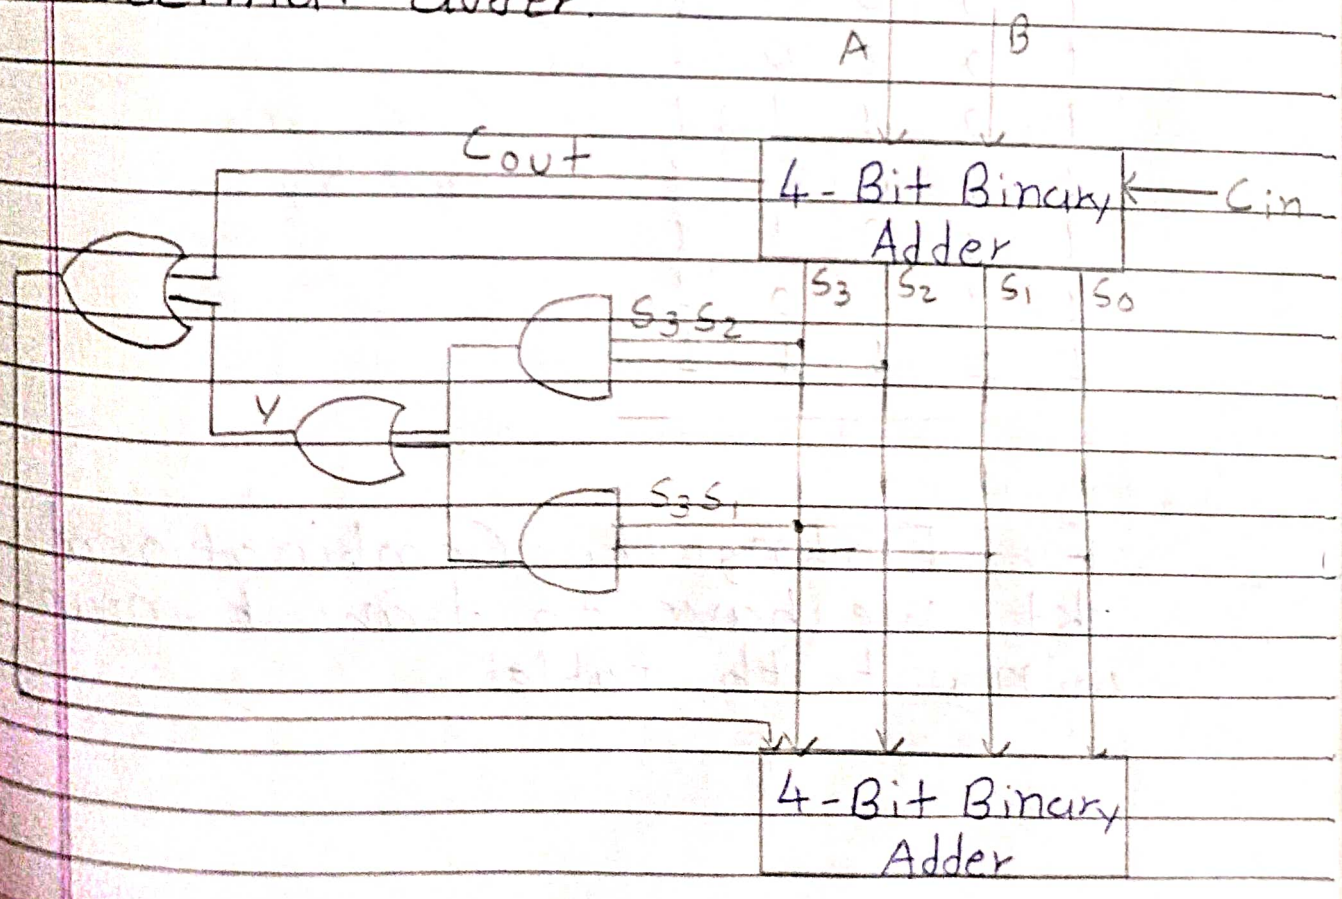 Adder.
A B
Cout
4-Bit Binary
Adder
Cin
S3 S2 S1 S0
S3 S2
Y
S3 S1
4-Bit Binary
Adder